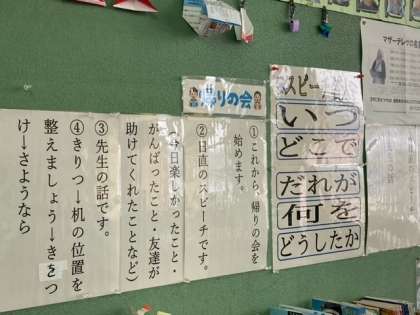 帰りの会
①これから、帰りの会を
始めます。
②日直のスピーチです。
（今日楽しかったこと・
がんばったこと・友達が
助けてくれたことなど）
③先生の話です。
④きりつ→机の位置を
整えましょう→きをつ
け→さようなら
いつ
どこで
だれが
何を
どうしたか